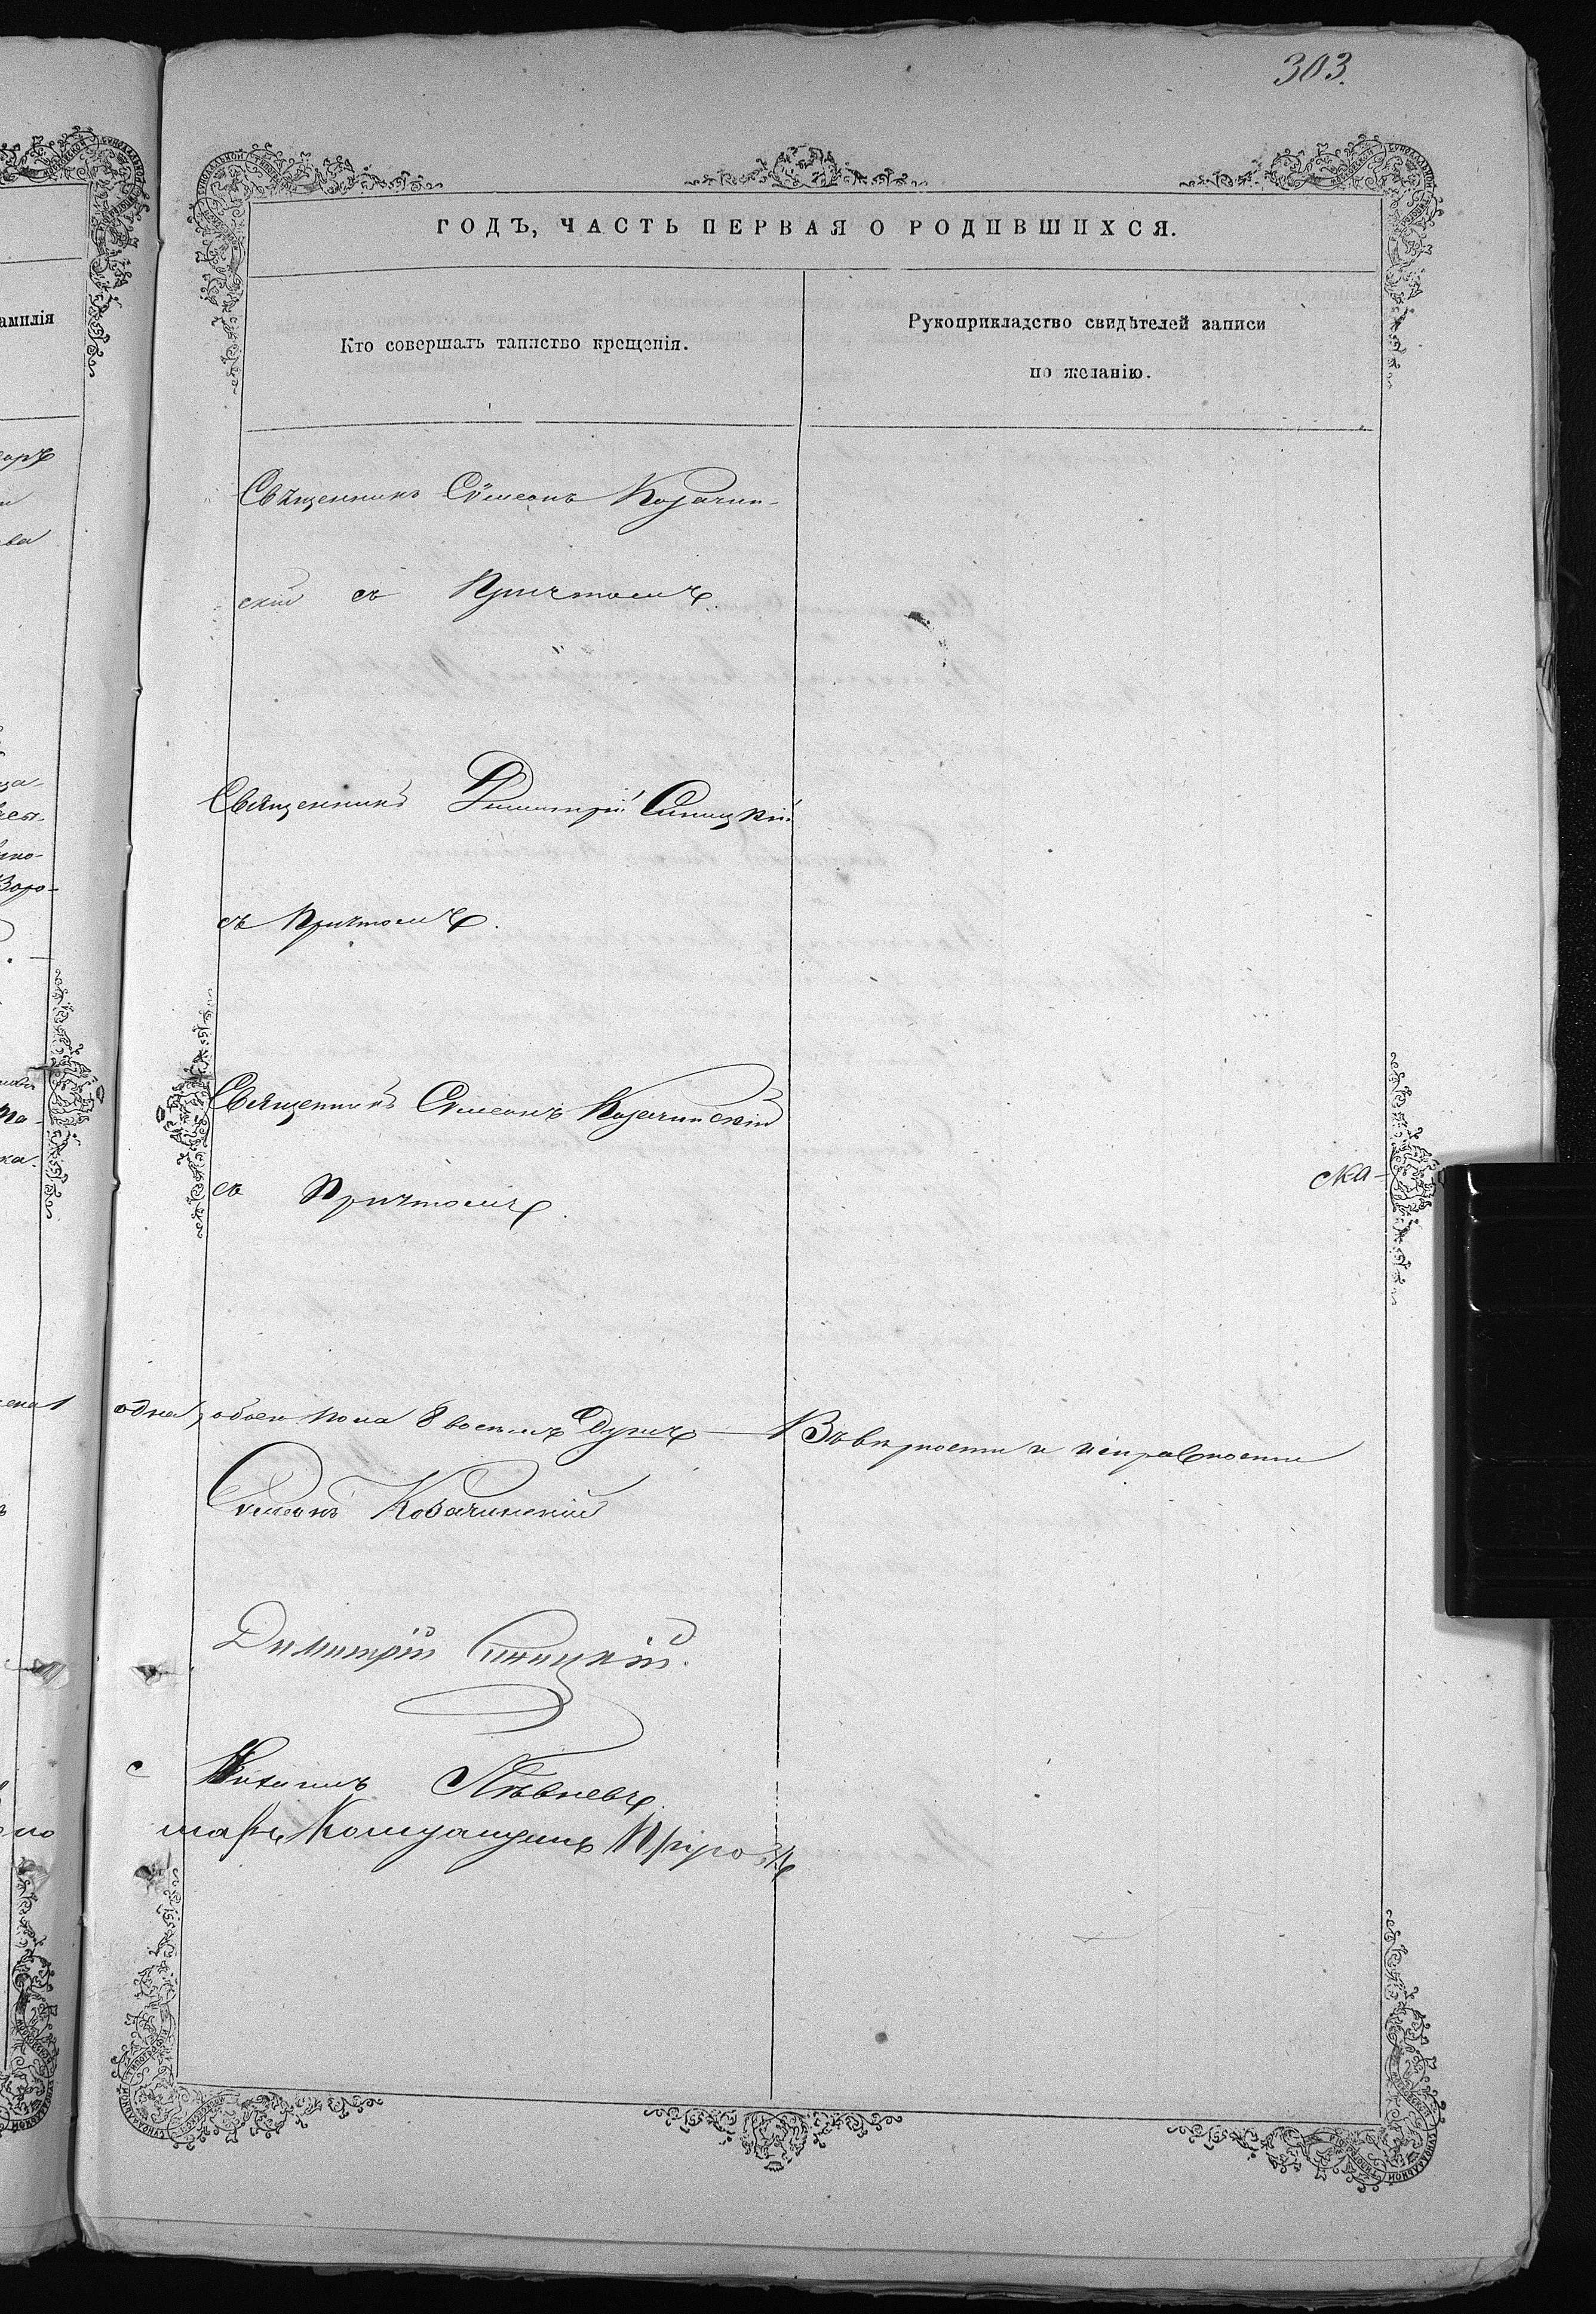 303.
ГОДЪ, ЧАСТЬ ПЕРВАЯ О РОДИВШИХСЯ.
Кто совершалъ таинство крещенія.
Рукоприкладство свидѣтелей записи
по желанію.
амилія
Священникъ Сѵмеонъ Козачин-
скій съ Причтомъ.
Священникъ Димитрій Синицкій
съ Причтомъ.
Священникъ Сѵмеонъ Козачинскій
съ Причтомъ.
ска-
одна, обоего пола 8 восемь Душъ — Въ вѣрности и исправности
Сѵмеонъ Козачинскій
Димитрій Синицкій.
Пѣвневъ